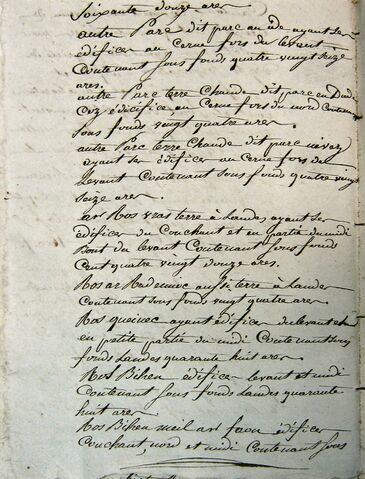 Soixante douze ares
autre Parc dit parc an ayant ses
édifices au Cerne fors du levant
Contenant sous fond quatre vingt seize
ares.
autre Parc terre Chaude dit parc
coz édicifice au Cerne fors du nord Contenant
sous fonds vingt quatre ares.
autre Parc terre Chaude dit parc nevez
ayant ses édifices au Cerne fors du
Levant Contenant sous fond quatre vingt
seize ares.
ar Ros vras terre à Landes ayant ses
édifices du Couchant et en partie du midi
du levant Contenant sous fond
Cent quatre vingt douze ares.
Ros ar terre à Landes
Contenant sous fond vingt quatre ares
Ros ayant édifices du levant et
en petite partie du midi Contenant sous
fonds Landes quarante huit ares
Ros Bihen édifices levant et midi
Contenant sous fonds Landes quarante
huit ares
Ros Bihen ar édifices
Couchant, nord et midi Contenant sous